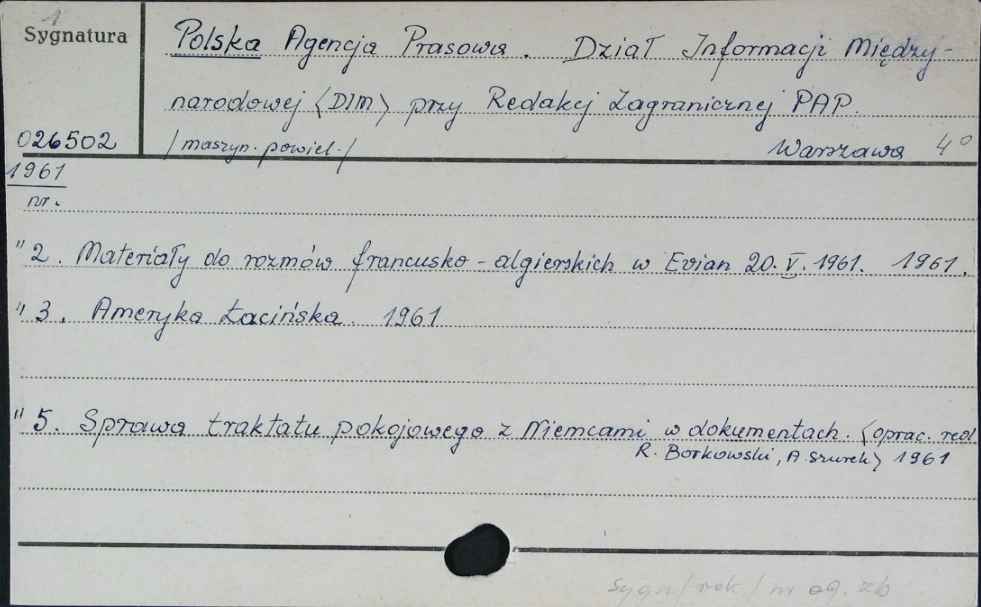 1
Sygnatura
Polska Agencja Prasowa. Dział Informacji Między-
narodowej <DIM> przy Redakcj Zagranicznej PAP.
026502 /maszyn. powiel./ Warszawa 4°
1961
nr.
"2. Materiały do rozmów francusko-algierskich w Evian 20.V.1961. 1961.
"3. Ameryka Łacińska. 1961
"5. Sprawa traktatu pokojowego z Niemcami w dokumentach. <oprac. red
R. Borkowski, A. Szurek> 1961
sygn/rok/nr og. zb